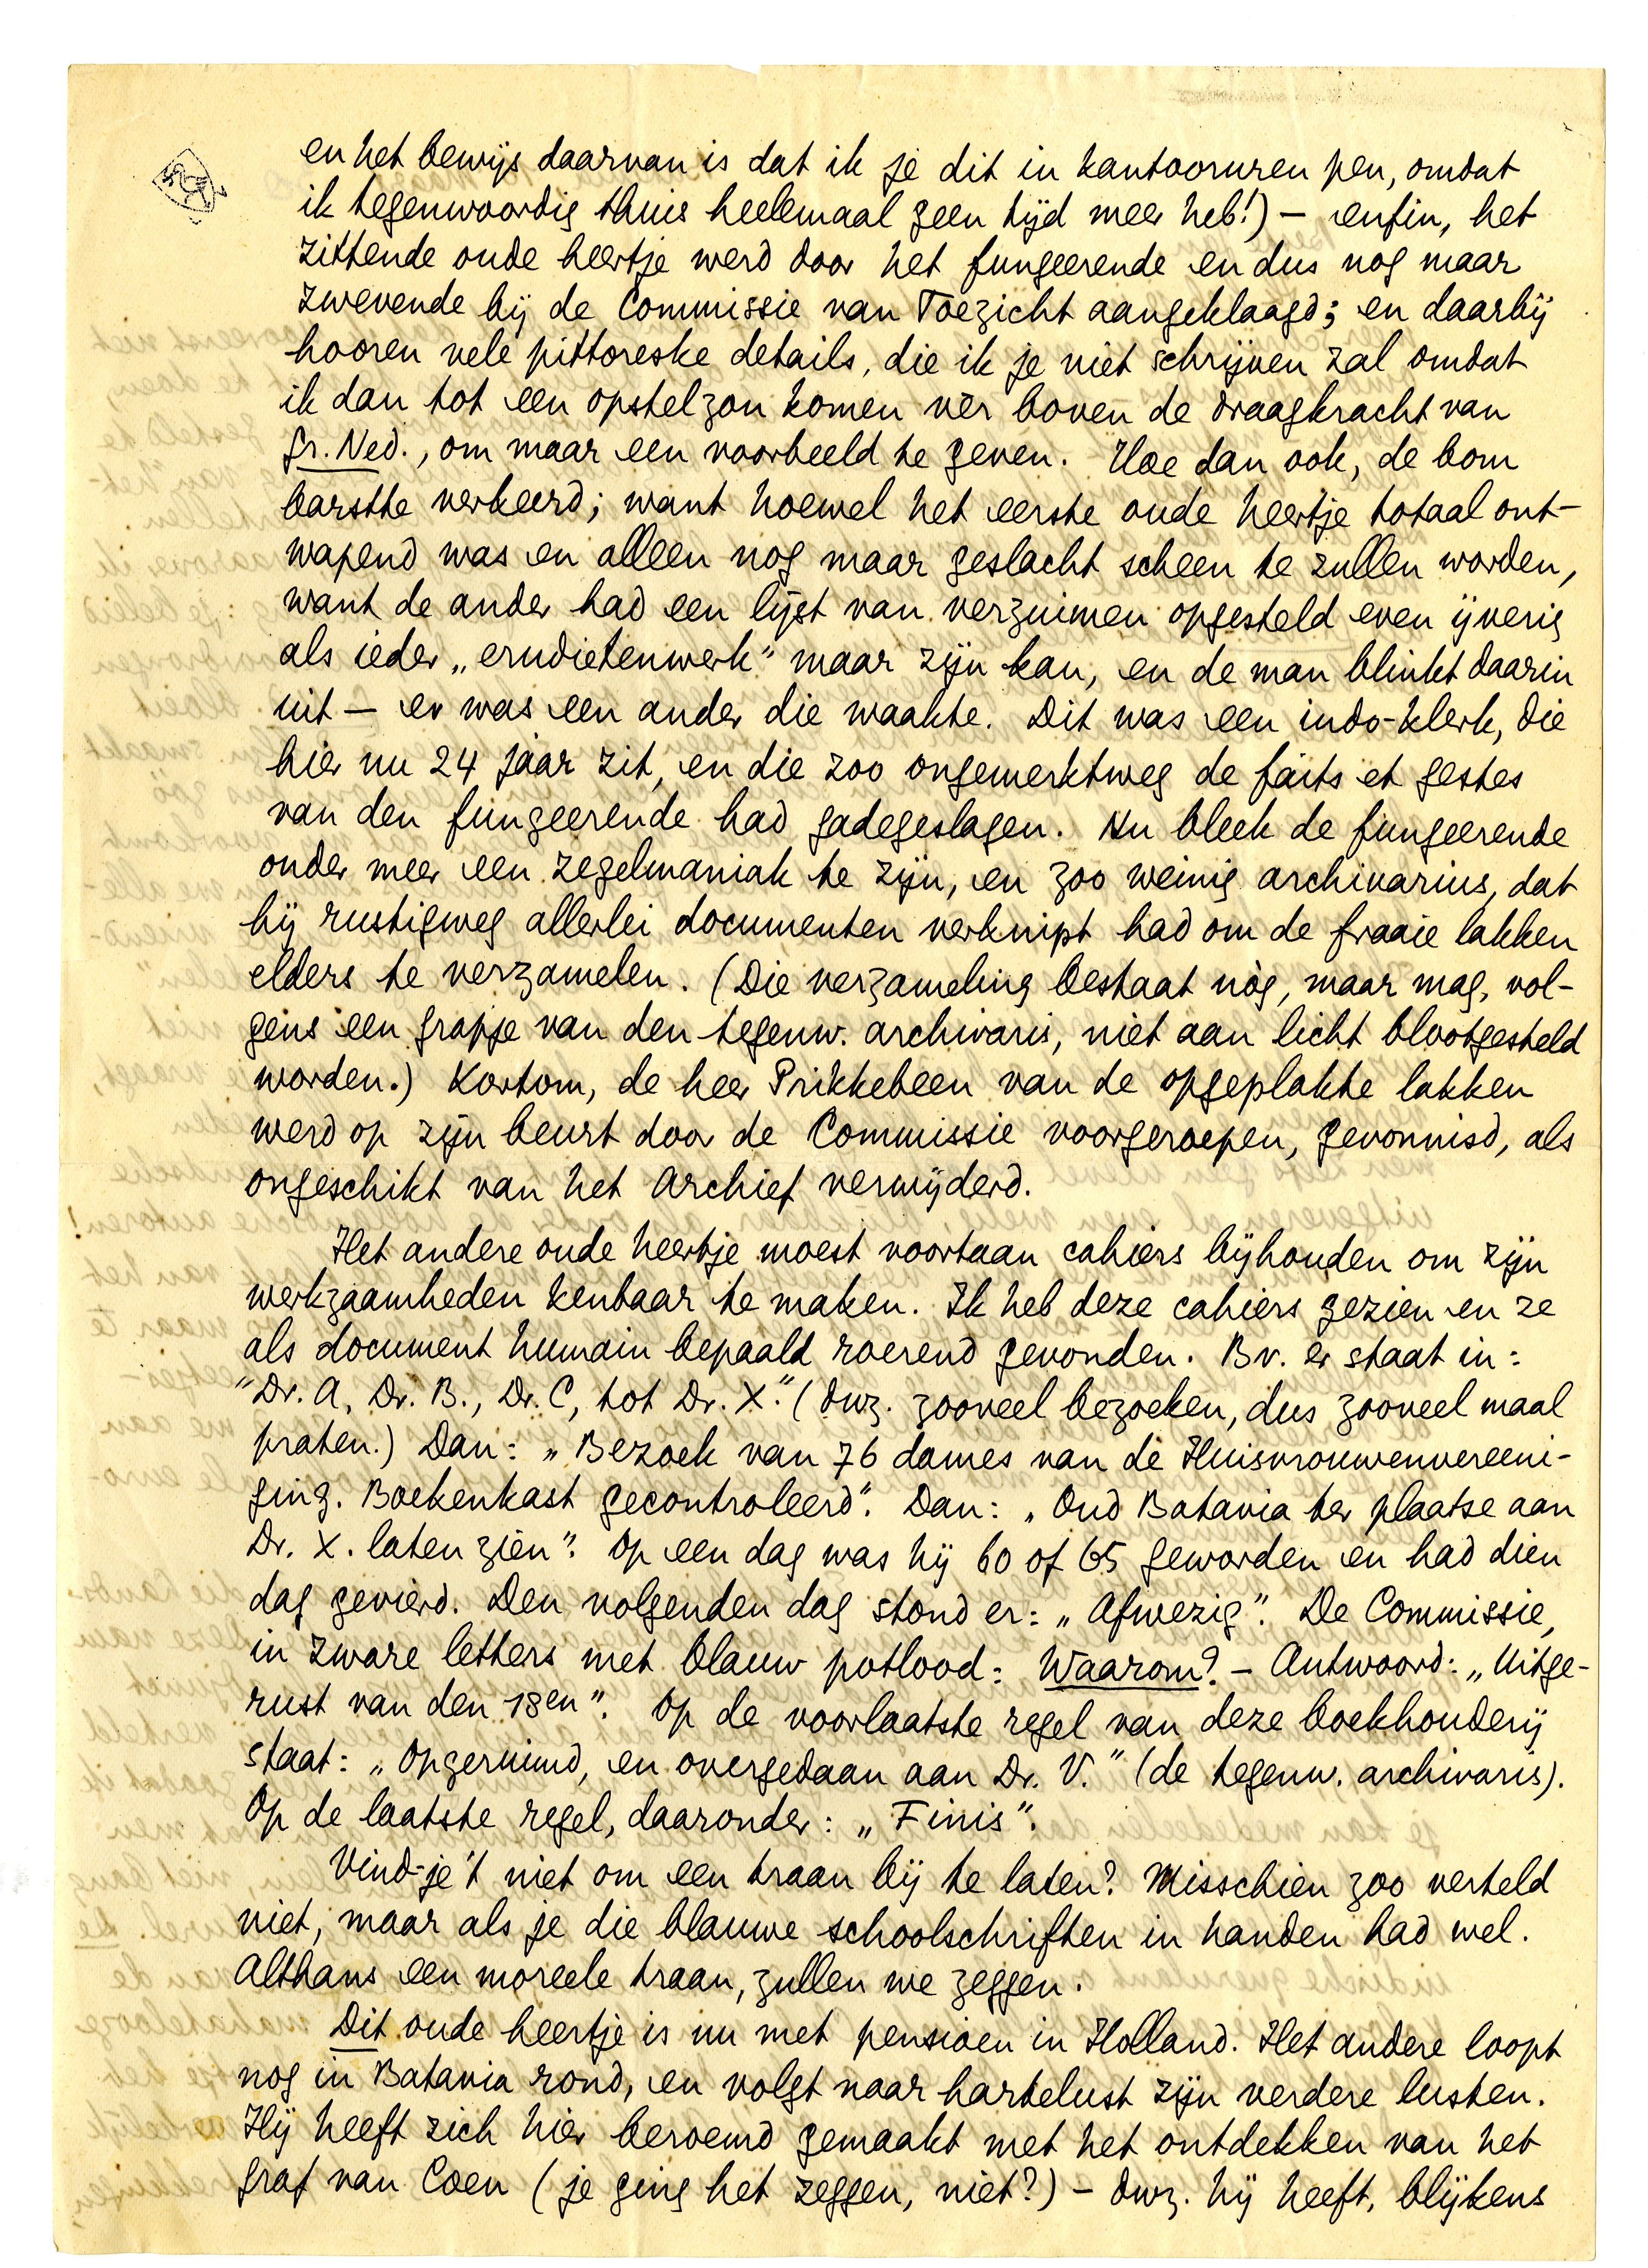 en het bewijs daarvan is dat ik je dit in kantooruren pen, omdat
ik tegenwoordig thuis heelemaal geen tijd meer heb!) — enfin, het
zittende oude heertje werd door het fungeerende en dus nog maar
zwevende bij de Commissie van Toezicht aangeklaagd; en daarbij
hooren vele pittoreske details, die ik je niet schrijven zal omdat
ik dan tot een opstel zou komen vèr boven de draagkracht van
Gr. Ned., om maar een voorbeeld te geven. Hoe dan ook, de bom
barstte verkeerd; want hoewel het eerste oude heertje totaal ont-
wapend was en alleen nog maar geslacht scheen te zullen worden,
want de ander had een lijst van verzuimen opgesteld even ijverig
als ieder „erudietenwerk" maar zijn kan, en de man blinkt daarin
uit — er was een ander die waakte. Dit was een indo-klerk, die
hier nu 24 jaar zit, en die zoo ongemerktweg de faits et gestes
van den fungeerende had gadegeslagen. Nu bleek de fungeerende
onder meer een zegelmaniak te zijn, en zoo weinig archivarius, dat
hij rustigweg allerlei documenten verknipt had om de fraaie lakken
elders te verzamelen. (Die verzameling bestaat nòg, maar mag, vol-
gens een grapje van den tegenw. archivaris, niet aan licht blootgesteld
worden.) Kortom, de heer Prikkebeen van de opgeplakte lakken
werd op zijn beurt door de Commissie voorgeroepen, gevonnisd, als
ongeschikt van het Archief verwijderd.
Het andere oude heertje moest voortaan cahiers bijhouden om zijn
werkzaamheden kenbaar te maken. Ik heb deze cahiers gezien en ze
als document humain bepaald roerend gevonden. Bv. er staat in:
"Dr. A, Dr. B., Dr. C, tot Dr. X." (dwz. zooveel bezoeken, dus zooveel maal
praten.) Dan: „Bezoek van 76 dames van de Huisvrouwenvereeni-
ging. Boekenkast gecontroleerd". Dan: „Oud Batavia ter plaatse aan
Dr. X. laten zien". Op een dag was hij 60 of 65 geworden en had dien
dag gevierd. Den volgenden dag stond er: „Afwezig". De Commissie,
in zware letters met blauw potlood: Waarom? — Antwoord: „Uitge-
rust van den 18en". Op de voorlaatste regel van deze boekhouderij
staat: „Opgeruimd, en overgedaan aan Dr. V." (de tegenw. archivaris).
Op de laatste regel, daaronder: „Finis".
Vind-je 't niet om een traan bij te laten? Misschien zoo verteld
niet, maar als je die blauwe schoolschriften in handen had wel.
Althans een moreele traan, zullen we zeggen.
Dit oude heertje is nu met pensioen in Holland. Het andere loopt
nog in Batavia rond, en volgt naar hartelust zijn verdere lusten.
Hij heeft zich hier beroemd gemaakt met het ontdekken van het
graf van Coen (je ging het zeggen, niet?) — dwz. hij heeft, blijkens